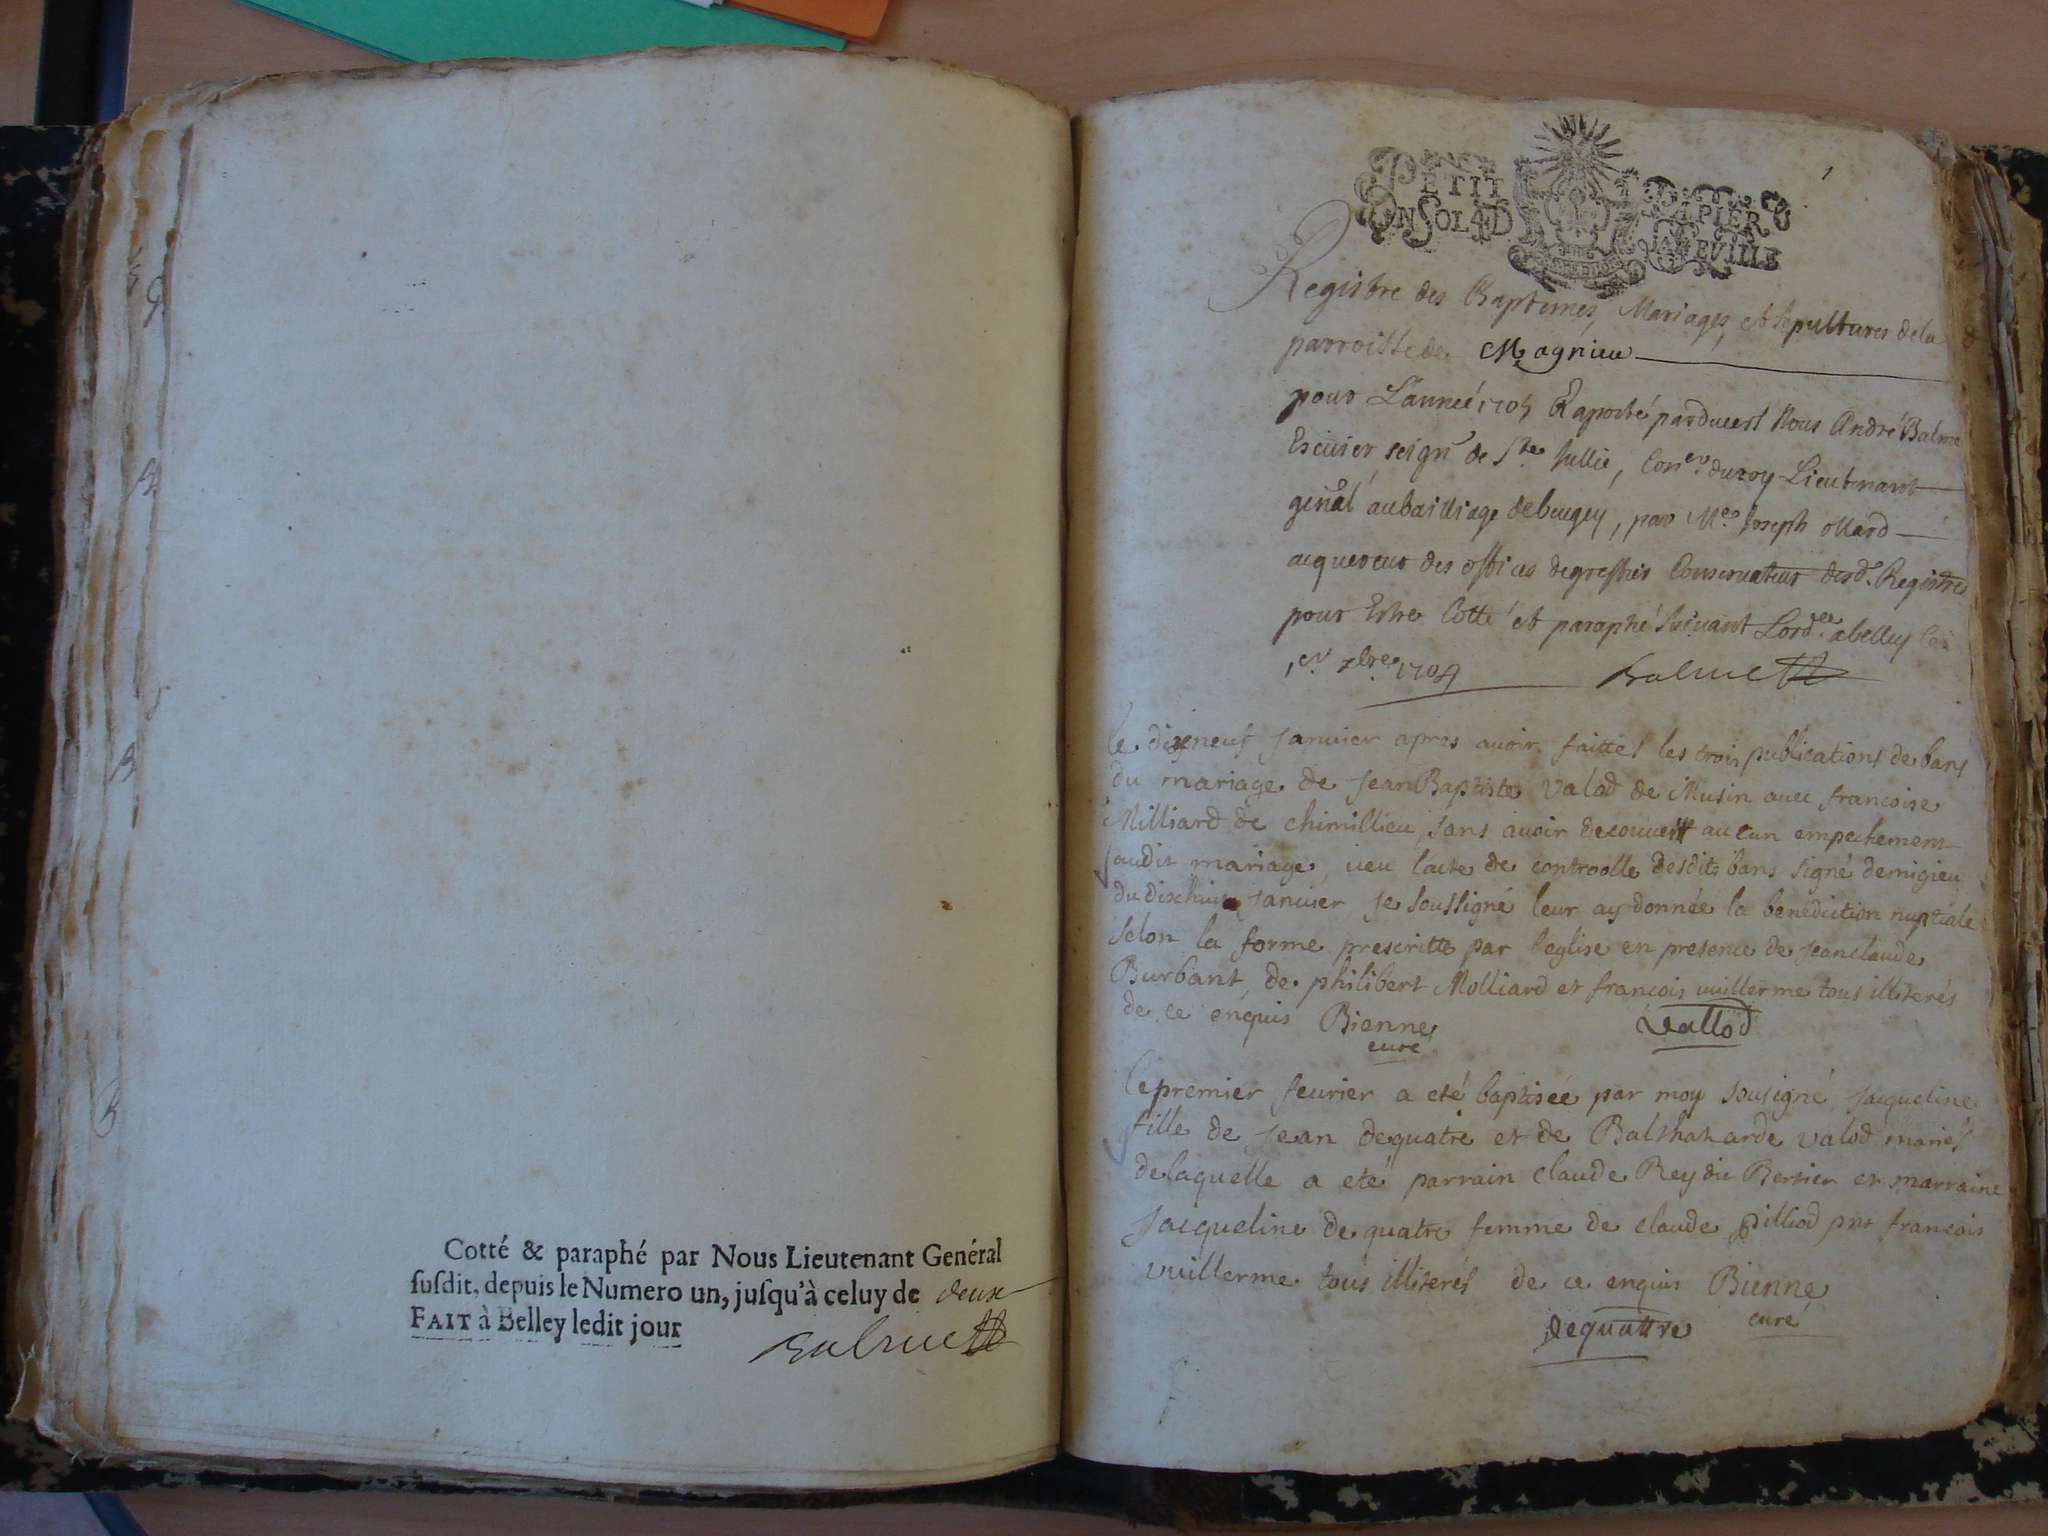 Cotté & paraphé par Nous Lieutenant Genéral
susdit, depuis le Numero un, jusqu'à celuy de deux
FAIT à Belley ledit jour
Balme
1
PETIT PAPIER
UN SOL 4 D LA FEVILLE
Registre des Baptemes, Mariages, et sepultures dela
parroisse de Magnieu
pour L'anneé 1705 Raporté pardevert Nous André Balme
Escuier seigr de Ste Jullie, Coner du roy Lieutenant
genãl au bailliage de bugey, par Me Joseph ollard
acquereur des offices de greffier Conservateur desd. Registres
pour Estre Cotté et paraphé suivant Lordce a belley le
1er 7bre 1704 Balme
le dixneuf janvier apres avoir faittes les trois publications de bans
du mariage de jean Baptiste Valod de Musin avec francoise
Milliard de chimillieu, sans avoir decouvert aucun empechement
audit mariage, veu l'acte de controolle desdits bans signé demigieu
du dixhuit janvier je soussigné leur ay donnée la benediction nuptiale
selon la forme prescritte par l'eglise en presence de jeanclaude
Burbant, de philibert Molliard et francois vuillerme tous illiterés
de ce enquis Bienne Vallod
curé
le premier feurier a eté baptisée par moy sousigné jacqueline
fille de jean dequatre et de Balthazarde valod mariés
de laquelle a eté parrain claude Rey dit Bersier et marraine
jacqueline de quatre femme de claude pilliod pnt francois
vuillerme tous illiterés de ce enquis Bienne
dequattre curé